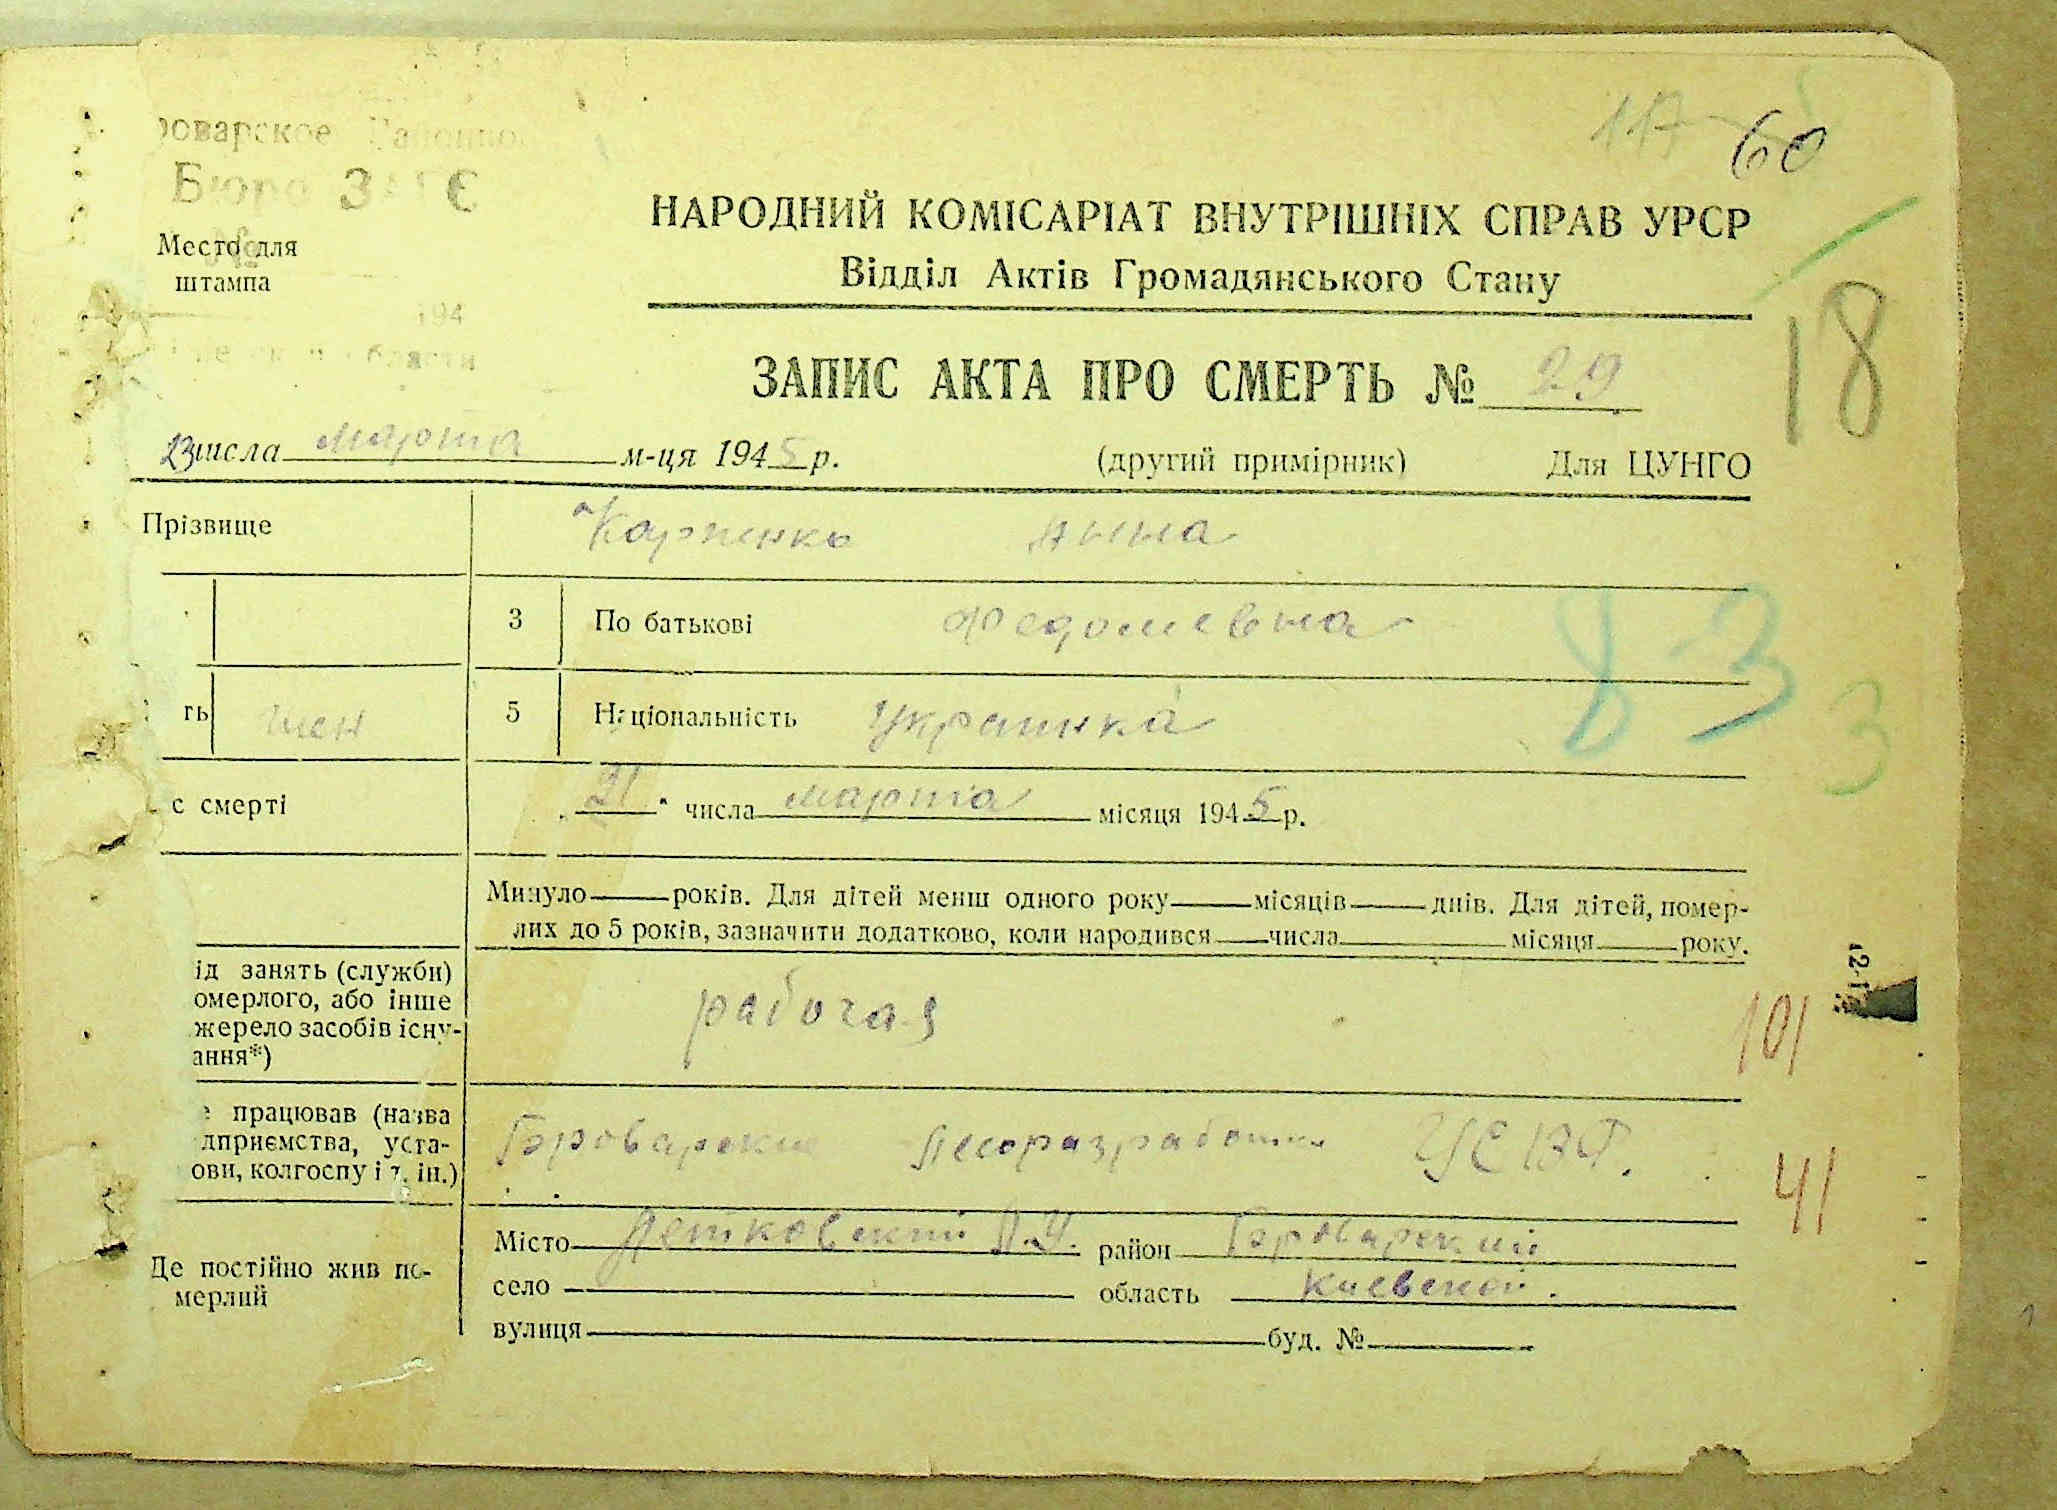 60
Бюро
НАРОДНИЙ КОМІСАРІАТ ВНУТРІШНІХ СПРАВ УРСР
Місто для
штампа
Відділ Актів Громадянського Стану
194
18
ЗАПИС АКТА ПРО СМЕРТЬ № 29
23 числа марта м-ця 1945 р. (другий примірник) Для ЦУНГО
Прізвище Карпенко Анна
3 По батькові
83
ть жен 5 Національність Украинка
3
с смерті 21 числа марта місяця 1945 р.
Минуло років. Для дітей менш одного року місяців днів. Для дітей, помер-
лих до 5 років, зазначити додатково, коли народився числа місяця року.
ід занять (служби)
омерлого, або інше
жерело засобів існу-
ання*)
рабочая
101
працював (назва
дприємства, уста-
ови, колгоспу і т. ін.)
Броварские Лесоразработки
41
Де постійно жив по-
мерлий
Місто район Броварский
село область Киевской.
вулиця буд. №